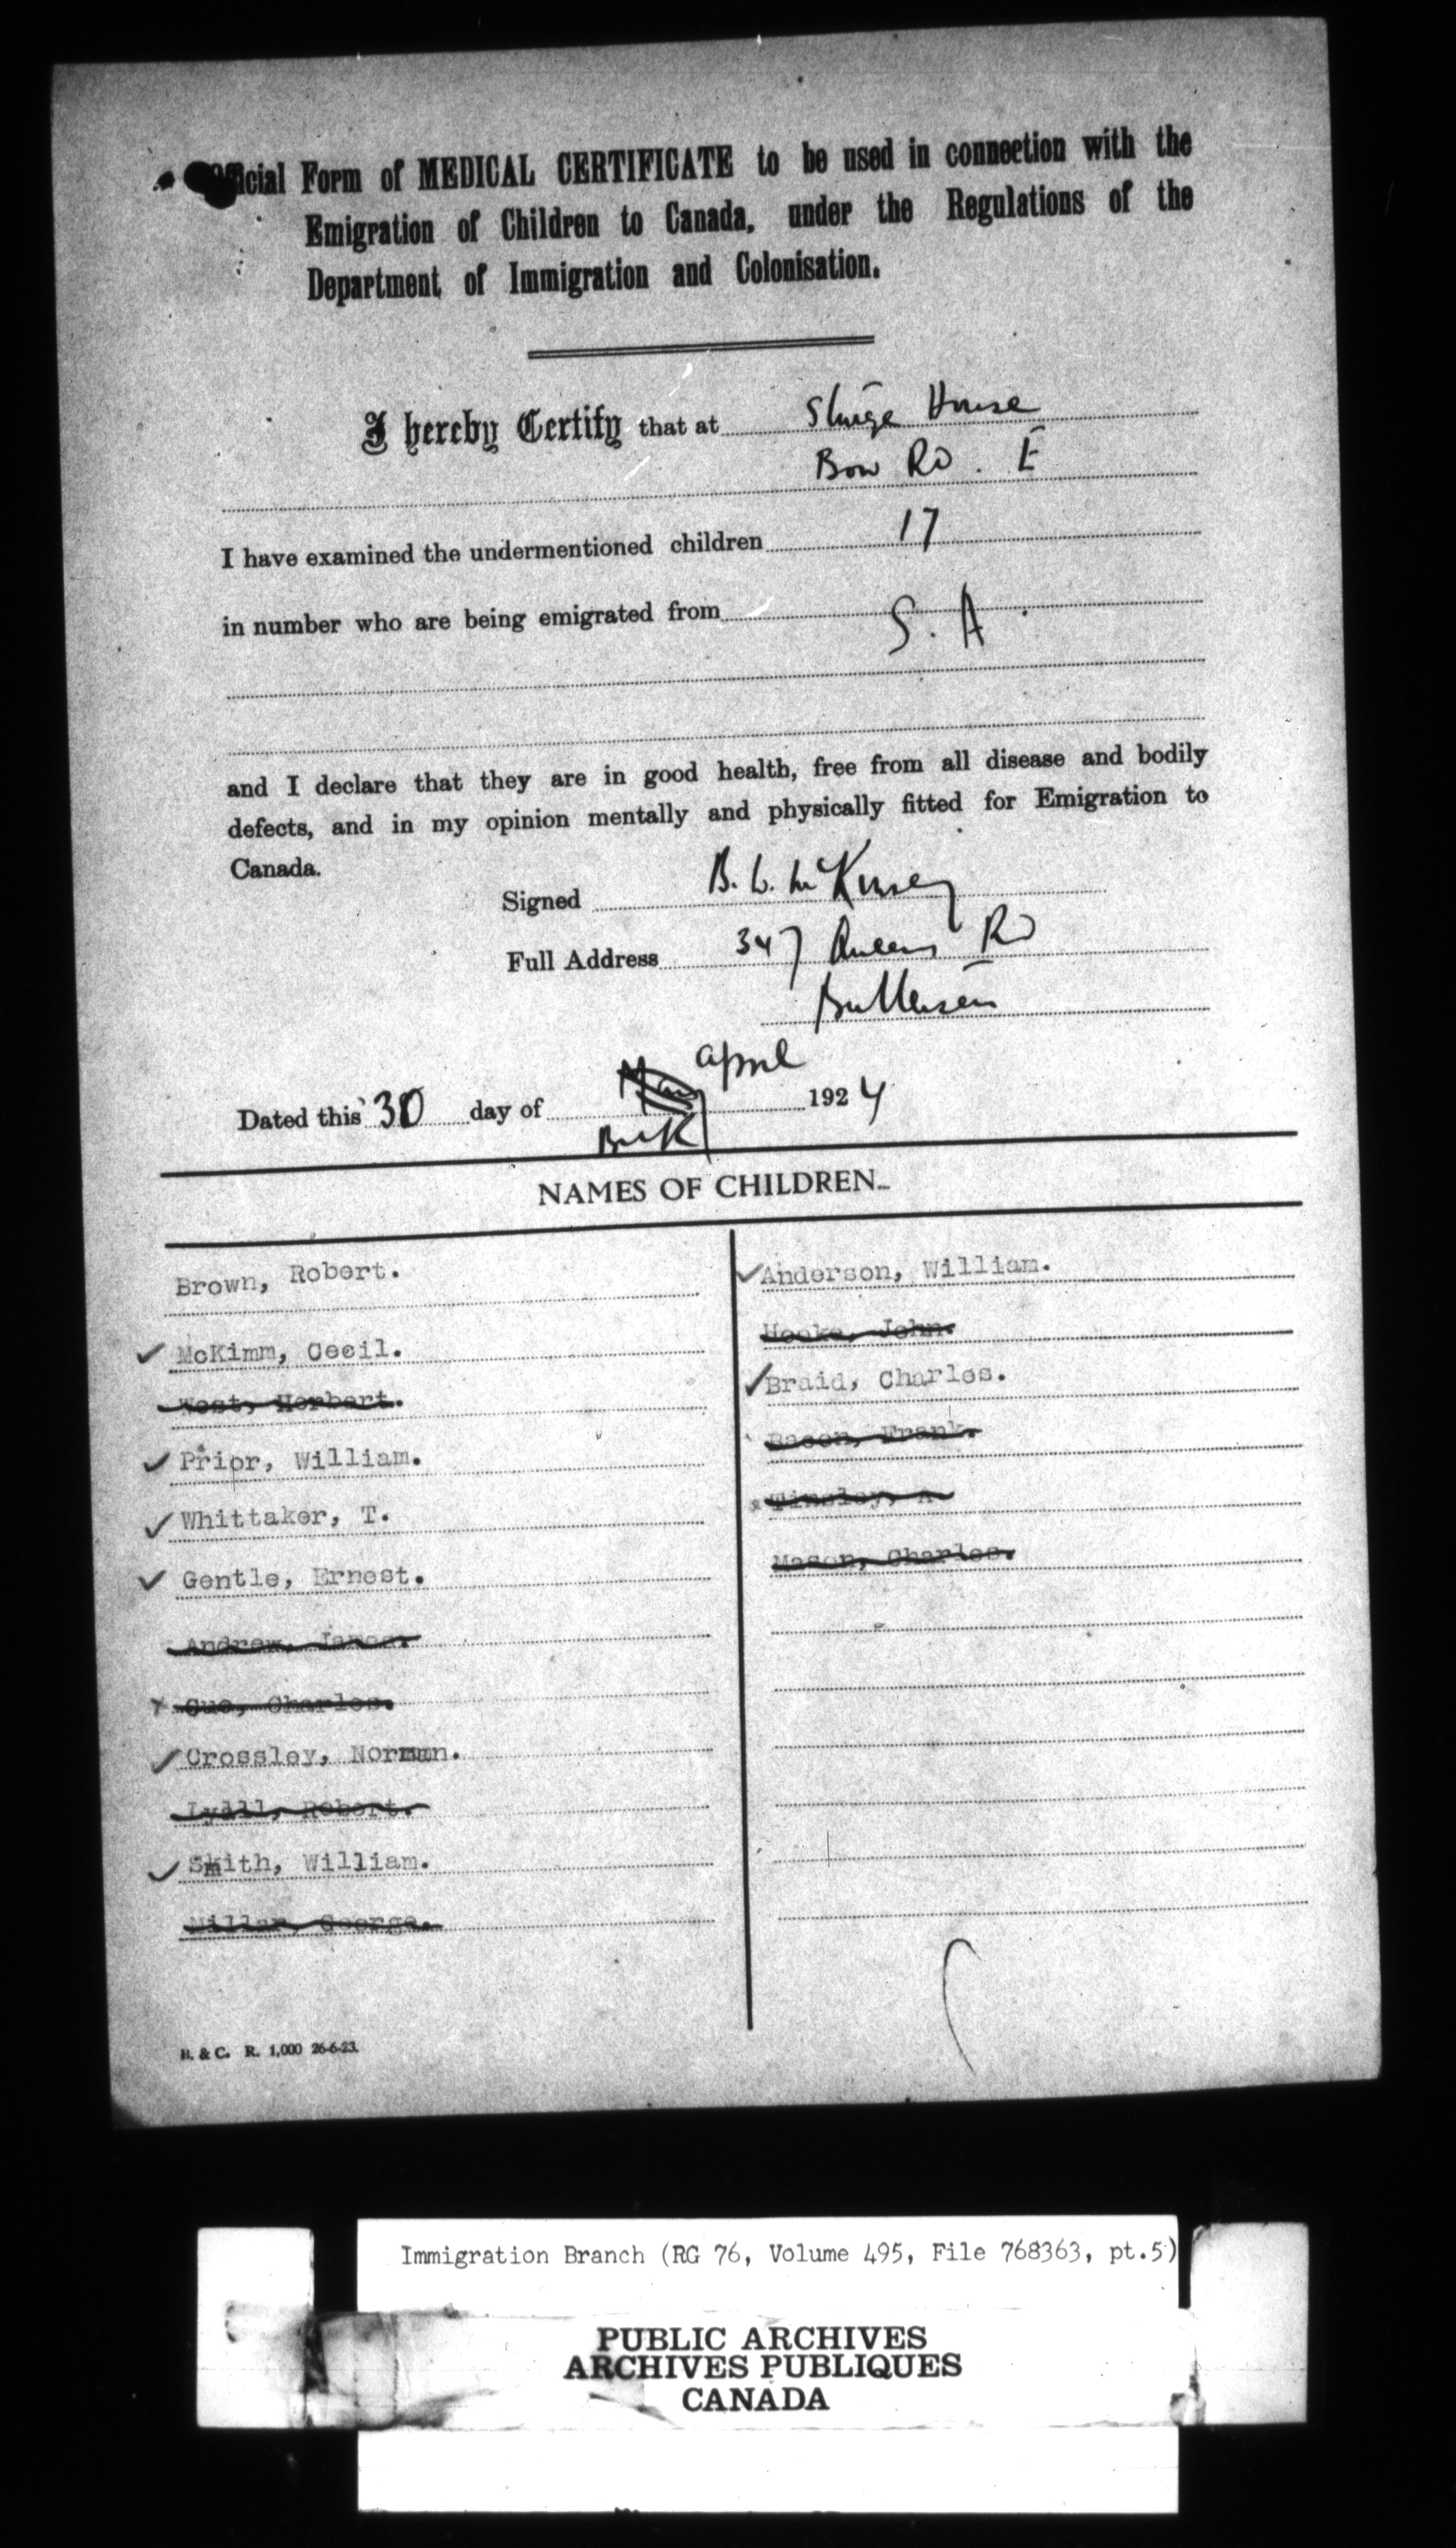 Official Form of MEDICAL CERTIFICATE to be used in connection with the
Emigration of Children to Canada, under the Regulations of the
Department of Immigration and Colonisation.
I hereby Certify that at Sturge House
Bow Rd. E
I have examined the undermentioned children 17
in number who are being emigrated from S. A.
and I declare that they are in good health, free from all disease and bodily
defects, and in my opinion mentally and physically fitted for Emigration to
Canada.
Signed
Full Address 347 Queens Rd
Battersea
april
Dated this 30 day of May 1924
NAMES OF CHILDREN
Brown, Robert.
McKimm, Cecil.
West, Herbert.
Prior, William.
Whittaker, T.
Gentle, Ernest.
Andrew, James.
Gue, Charles.
Crossley, Norman.
Lydll, Robert.
Smith, William.
Millar, George.
Anderson, William.
Hooke, John.
Braid, Charles.
Frank.
Tinsley, A.
Mason, Charles.
B. & C. R. 1,000 26-6-23.
Immigration Branch (RG 76, Volume 495, File 768363, pt.5)
PUBLIC ARCHIVES
ARCHIVES PUBLIQUES
CANADA